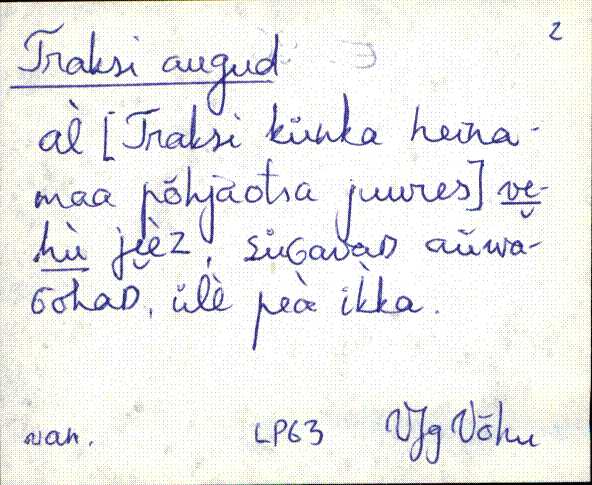 2
Traksi augud
al̀ [Traksi künka heina-
maa põhjaotsa juures] ve-
hù jɹ̬èz, süGavaD aùwa-
GohaD, ülè peà ìkka.
van. LP63 VJg Võhu